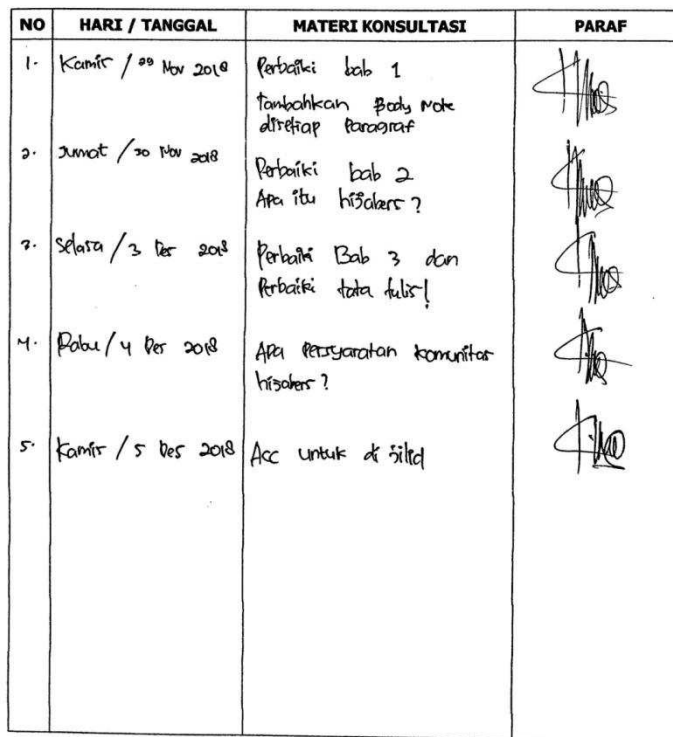 NO HARI / TANGGAL MATERI KONSULTASI PARAF
1. Kamis / 29 Nov 2018 Perbaiki bab 1
Tambahkan Body Note
disetiap Paragraf
2. Jumat / 30 Nov 2018
Perbaiki bab 2
Apa itu hijabers ?
3. Selasa / 3 Des 2018 Perbaiki Bab 3 dan
Perbaiki tata tulis!
4. Rabu / 4 Des 2018 Apa Persyaratan komunitas
hijabers ?
5. Kamis / 5 Des 2018 Acc untuk di jilid